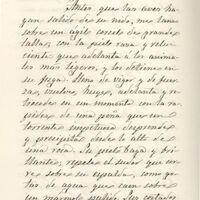 Antes que las aves ha-
yan salido de su nido, me lanzo
sobre un ágil corcel de grande
talla, con la pielo rasa y relu-
ciente que adelanta á los anima-
les mas ligeros y los detiene en
su fuga. Lleno de vigor y de fuer-
za, vuelve, huye, adelanta y re-
trocede en un momento con la ra-
pidez de una peña que un
torrente impetuoso desprende
y precipita desde lo alto de
una roca. Su pielo baya y bri-
llante, repele el sudor que cor-
re sobre su espalda, como go-
tas de agua que caen sobre
un marmol pulido. Sus costados